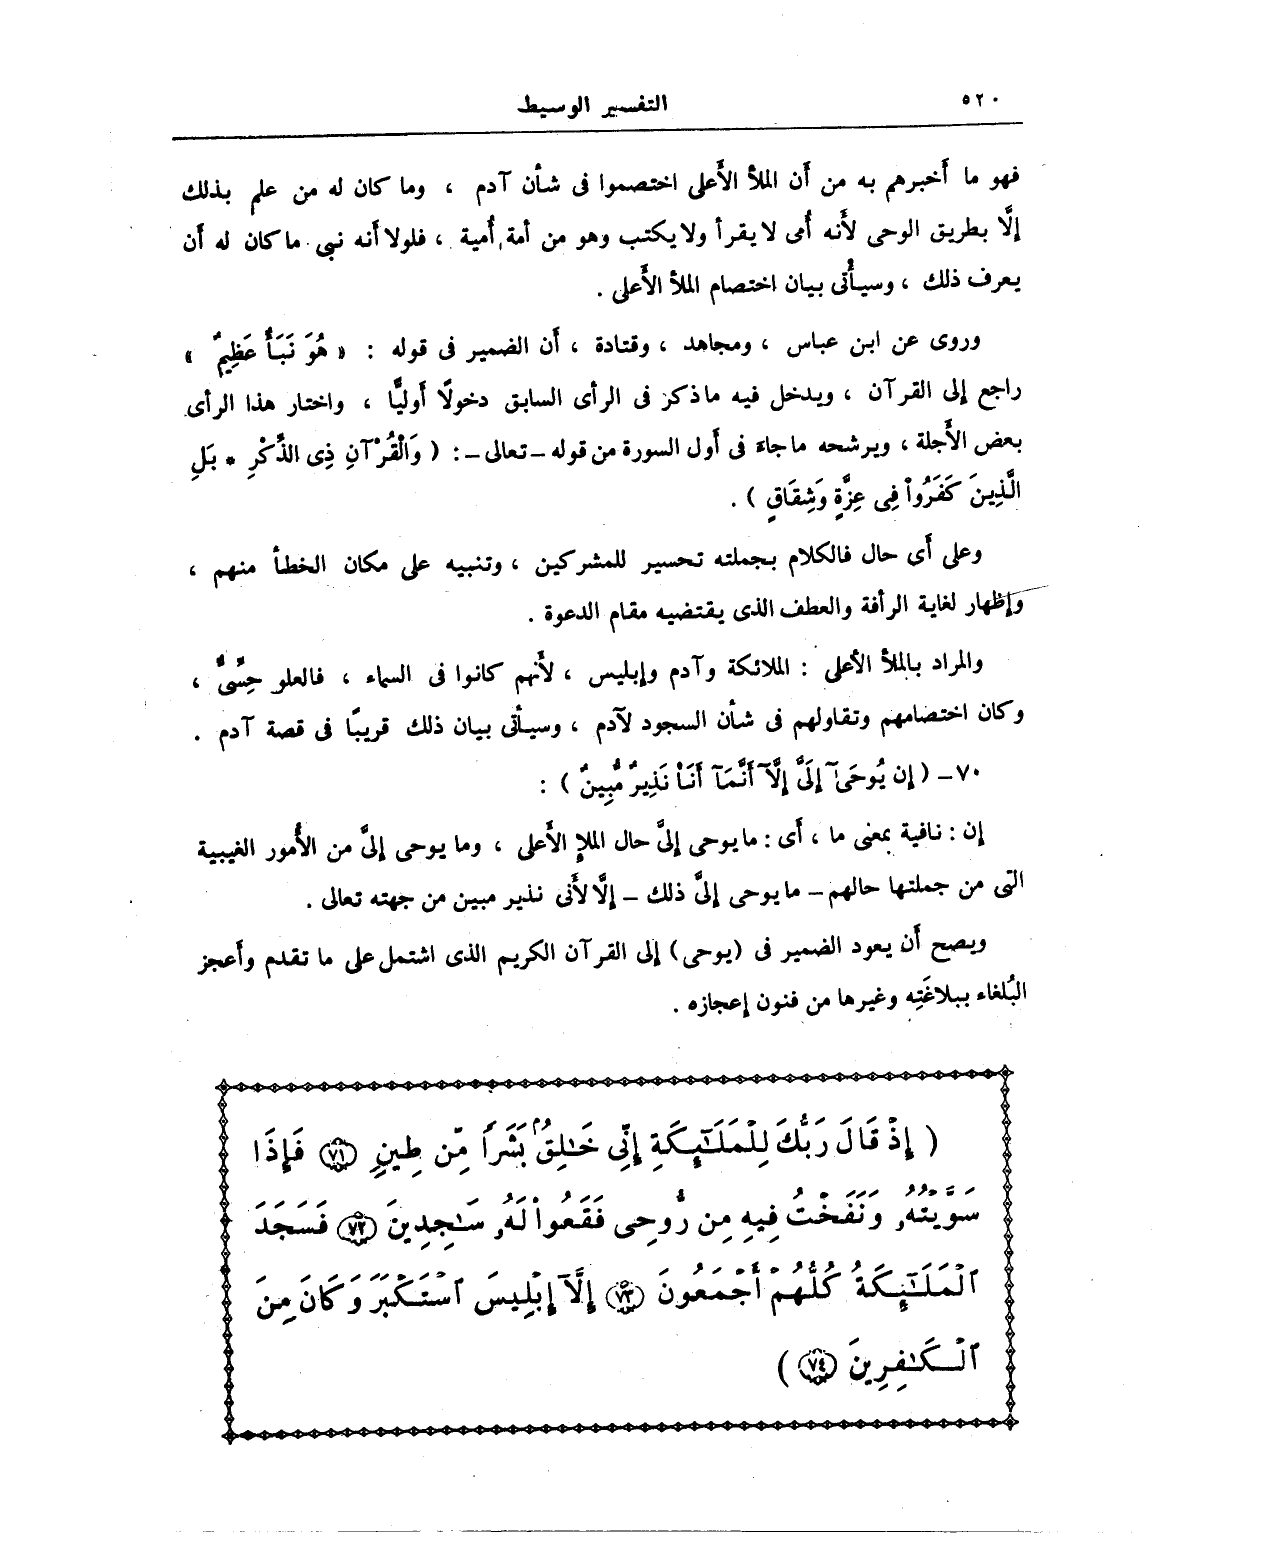 ٥٢٠
التفسير الوسيط
فهو ما أَخبرهم به من أَن الملأ الأَعلى اختصموا فى شأن آدم ، وما كان له من علم بذلك
إلَّا بطريق الوحى لأَنه أُمى لا يقرأ ولا يكتب وهو من أمة أُمية ، فلولا أَنه نبى ما كان له أن
يعرف ذلك ، وسيأْتى بيان اختصام الملأ الأَعلى .
وروى عن ابن عباس ، ومجاهد ، وقتادة ، أَن الضمير فى قوله : « هُوَ نَبَأٌ عَظِيمٌ »
راجع إلى القرآن ، ويدخل فيه ما ذكر فى الرأى السابق دخولًا أَوليًّا ، واختار هذا الرأى
بعض الأَجلة ، ويرشحه ما جاءَ فى أول السورة من قوله ـ تعالى ـ : ( وَالْقُرْآنِ ذِى الذِّكْرِ * بَلِ
الَّذِينَ كَفَرُواْ فِى عِزَّةٍ وَشِقَاقٍ ) .
وعلى أَى حال فالكلام بجملته تحسير للمشركين ، وتنبيه على مكان الخطأ منهم ،
وإظهار لغاية الرأفة والعطف الذى يقتضيه مقام الدعوة .
والمراد بالملأ الأعلى : الملائكة وآدم وإبليس ، لأَنهم كانوا فى السماء ، فالعلو حِسِّىٌّ ،
وكان اختصامهم وتقاولهم فى شأن السجود لآدم ، وسيأتى بيان ذلك قريبًا فى قصة آدم .
٧٠ ـ ( إن يُوحَىٰٓ إلَىَّ إلَّآ أَنَّمَآ أَنَا۠ نَذِيرٌ مُّبِينٌ ) :
إن : نافية بمعنى ما ، أَى : ما يوحى إلىَّ حال الملإ الأَعلى ، وما يوحى إلىَّ من الأُمور الغيبية
التى من جملتها حالهم ـ ما يوحى إلىَّ ذلك ـ إلَّا لأَنى نذير مبين من جهته تعالى .
ويصح أَن يعود الضمير فى (يوحى) إلى القرآن الكريم الذى اشتمل على ما تقدم وأَعجز
البُلغاء ببلاغَتِه وغيرها من فنون إعجازه .
( إِذْ قَالَ رَبُّكَ لِلْمَلَـٰٓئِكَةِ إِنِّى خَـٰلِقٌۢ بَشَرًا مِّن طِينٍ ﴿٧١﴾ فَإِذَا
سَوَّيْتُهُۥ وَنَفَخْتُ فِيهِ مِن رُّوحِى فَقَعُوا۟ لَهُۥ سَـٰجِدِينَ ﴿٧٢﴾ فَسَجَدَ
ٱلْمَلَـٰٓئِكَةُ كُلُّهُمْ أَجْمَعُونَ ﴿٧٣﴾ إِلَّآ إِبْلِيسَ ٱسْتَكْبَرَ وَكَانَ مِنَ
ٱلْكَـٰفِرِينَ ﴿٧٤﴾ )